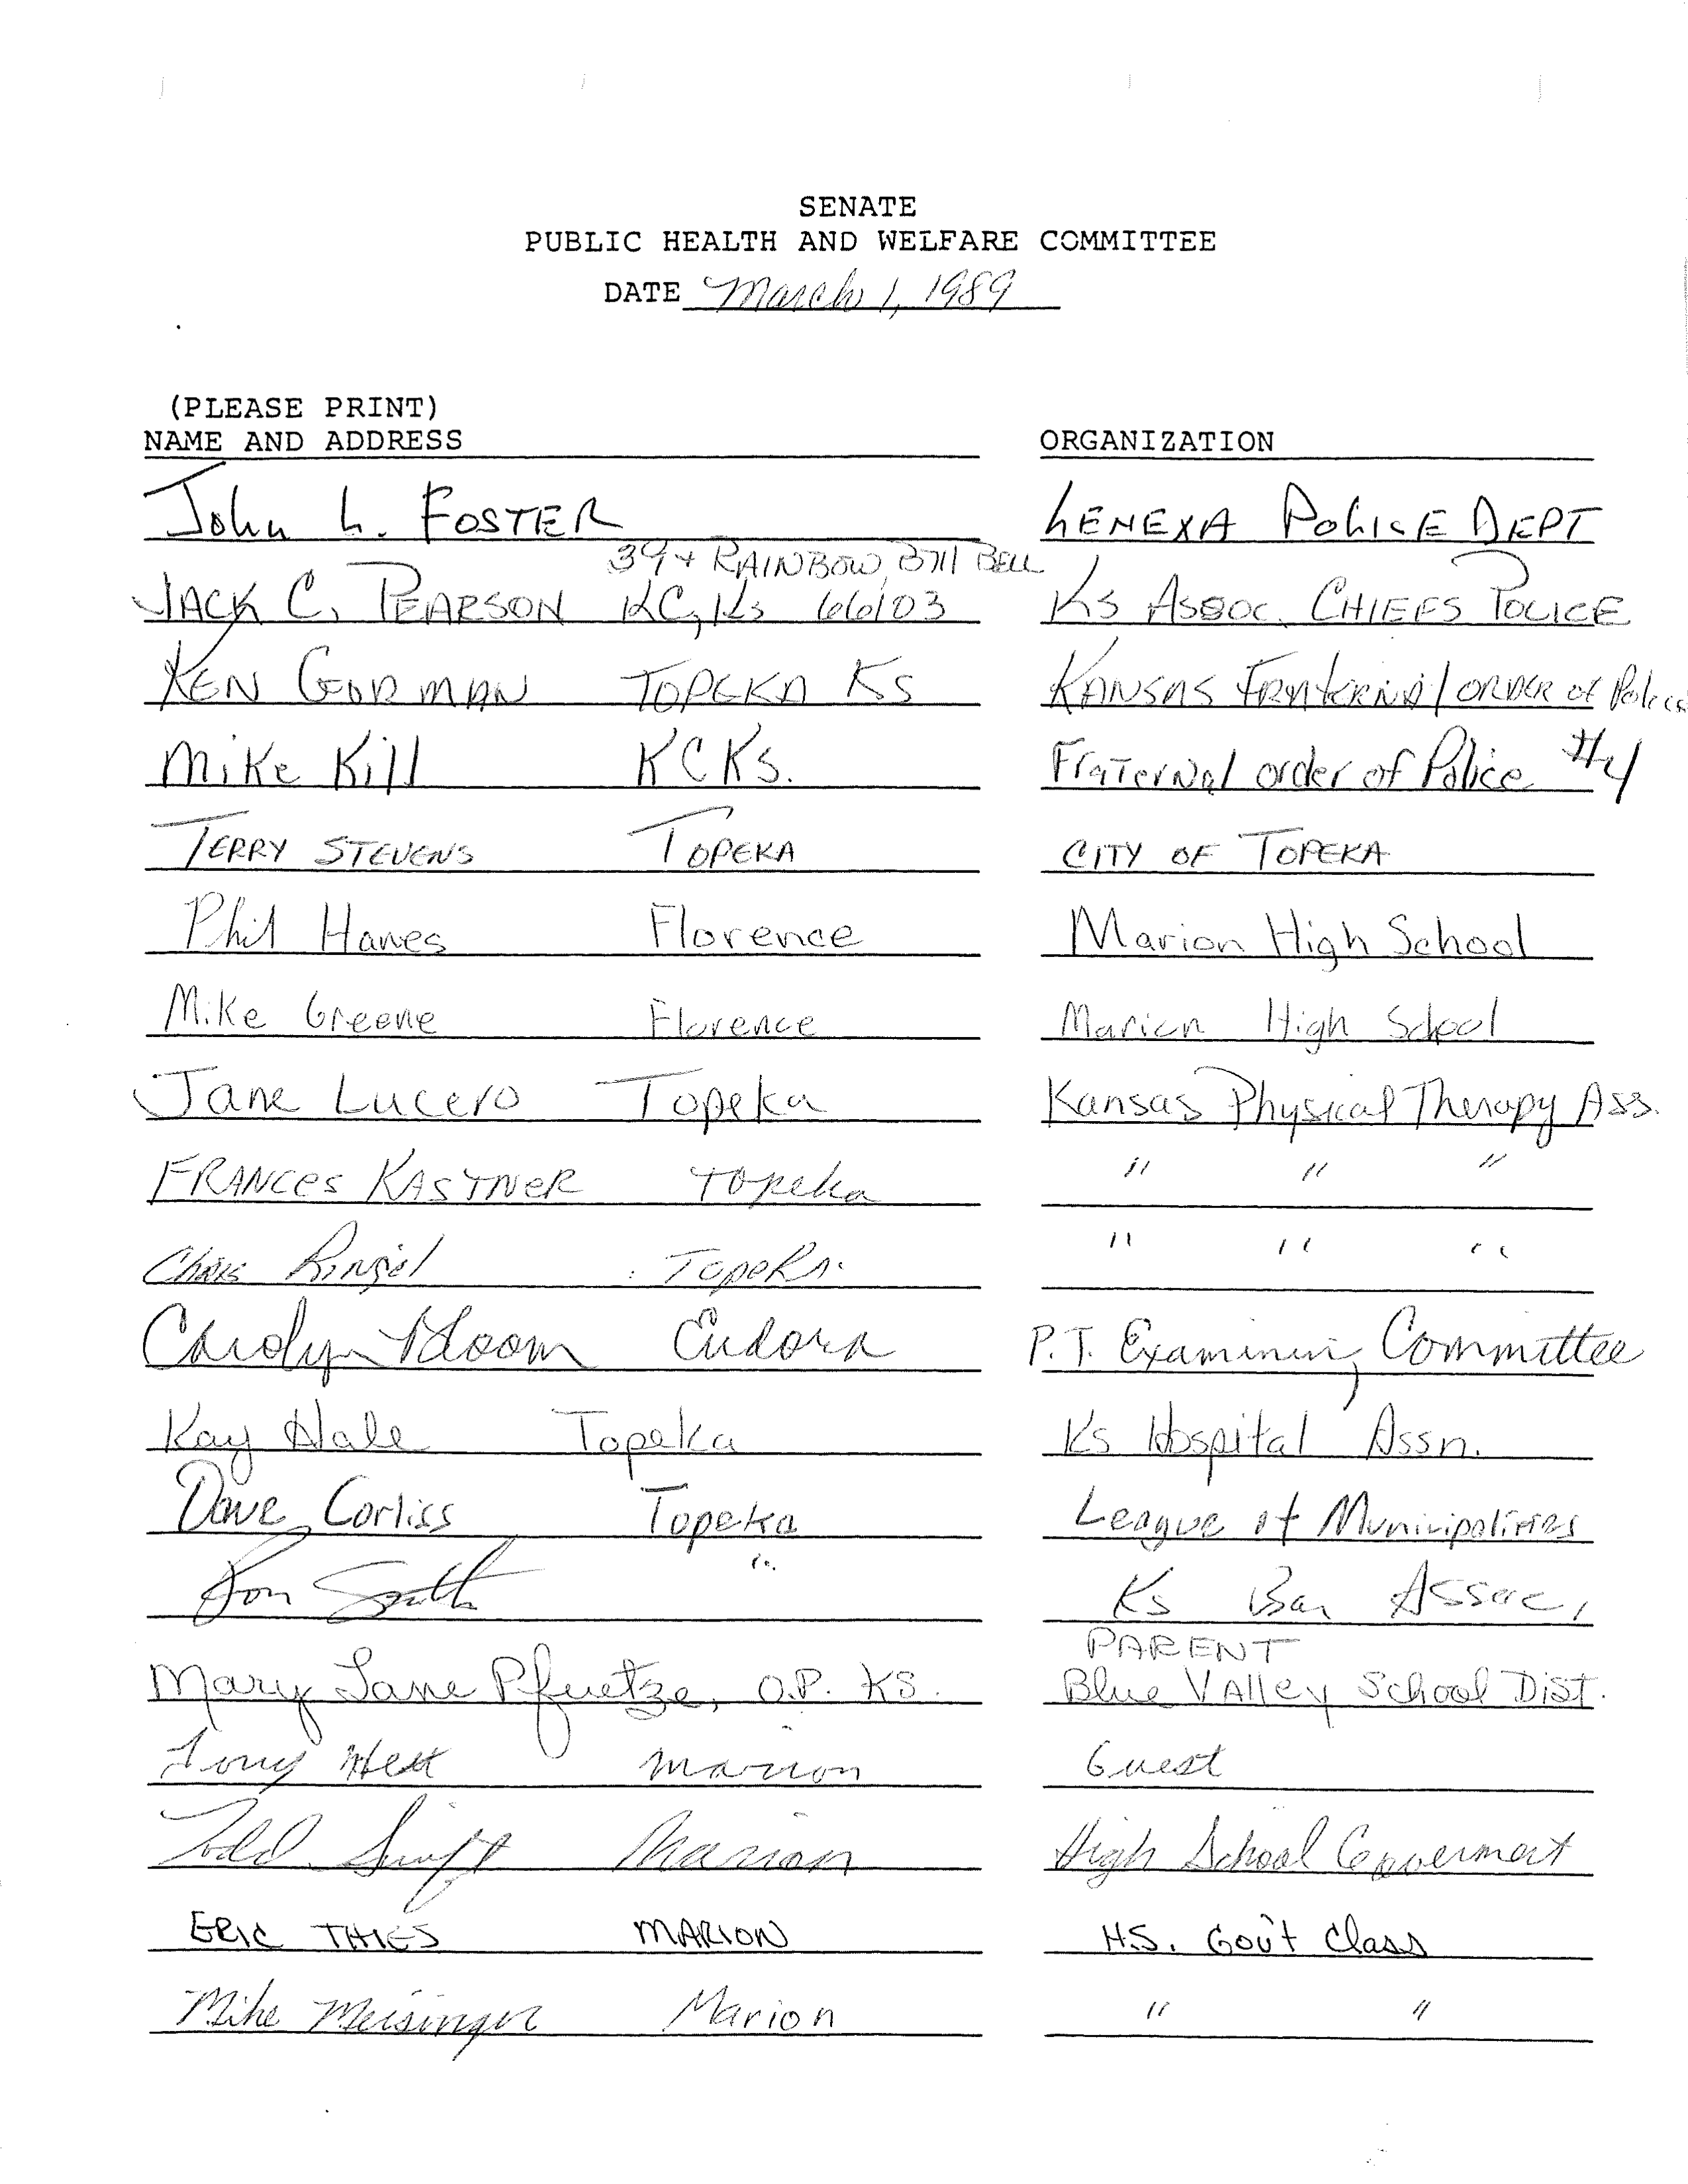 SENATE
PUBLIC HEALTH AND WELFARE COMMITTEE
DATE March 1, 1989
(PLEASE PRINT)
NAME AND ADDRESS ORGANIZATION
John L. FOSTER LENEXA POLICE DEPT
39+ RAINBOW, BELL
JACK C. PEARSON KC, Ks 66103 KS ASSOC. CHIEFS POLICE
KEN GORMAN TOPEKA KS KANSAS FRATERNAL ORDER of Police
Mike Kill KCKS. Fraternal order of Police #4
TERRY STEVENS TOPEKA CITY OF TOPEKA
Phil Hanes Florence Marion High School
Mike Greene Florence Marion High School
Jane Lucero Topeka Kansas Physical Therapy Ass.
FRANCES KASTNER Topeka " " "
Chris Topeka " " "
Carolyn Bloom Eudora P.T. Examining Committee
Kay Hale Topeka Ks Hospital Assn.
Dave Corliss Topeka League of Municipalities
Ron Smith " Ks Bar Assoc,
PARENT
Mary Jane Pfuetze, O.P. KS. Blue Valley School Dist.
Tony Hett Marion Guest
Todd Swift Marion High School Government
ERIC THIES MARION H.S. Gov't Class
Mike Meisinger Marion " "